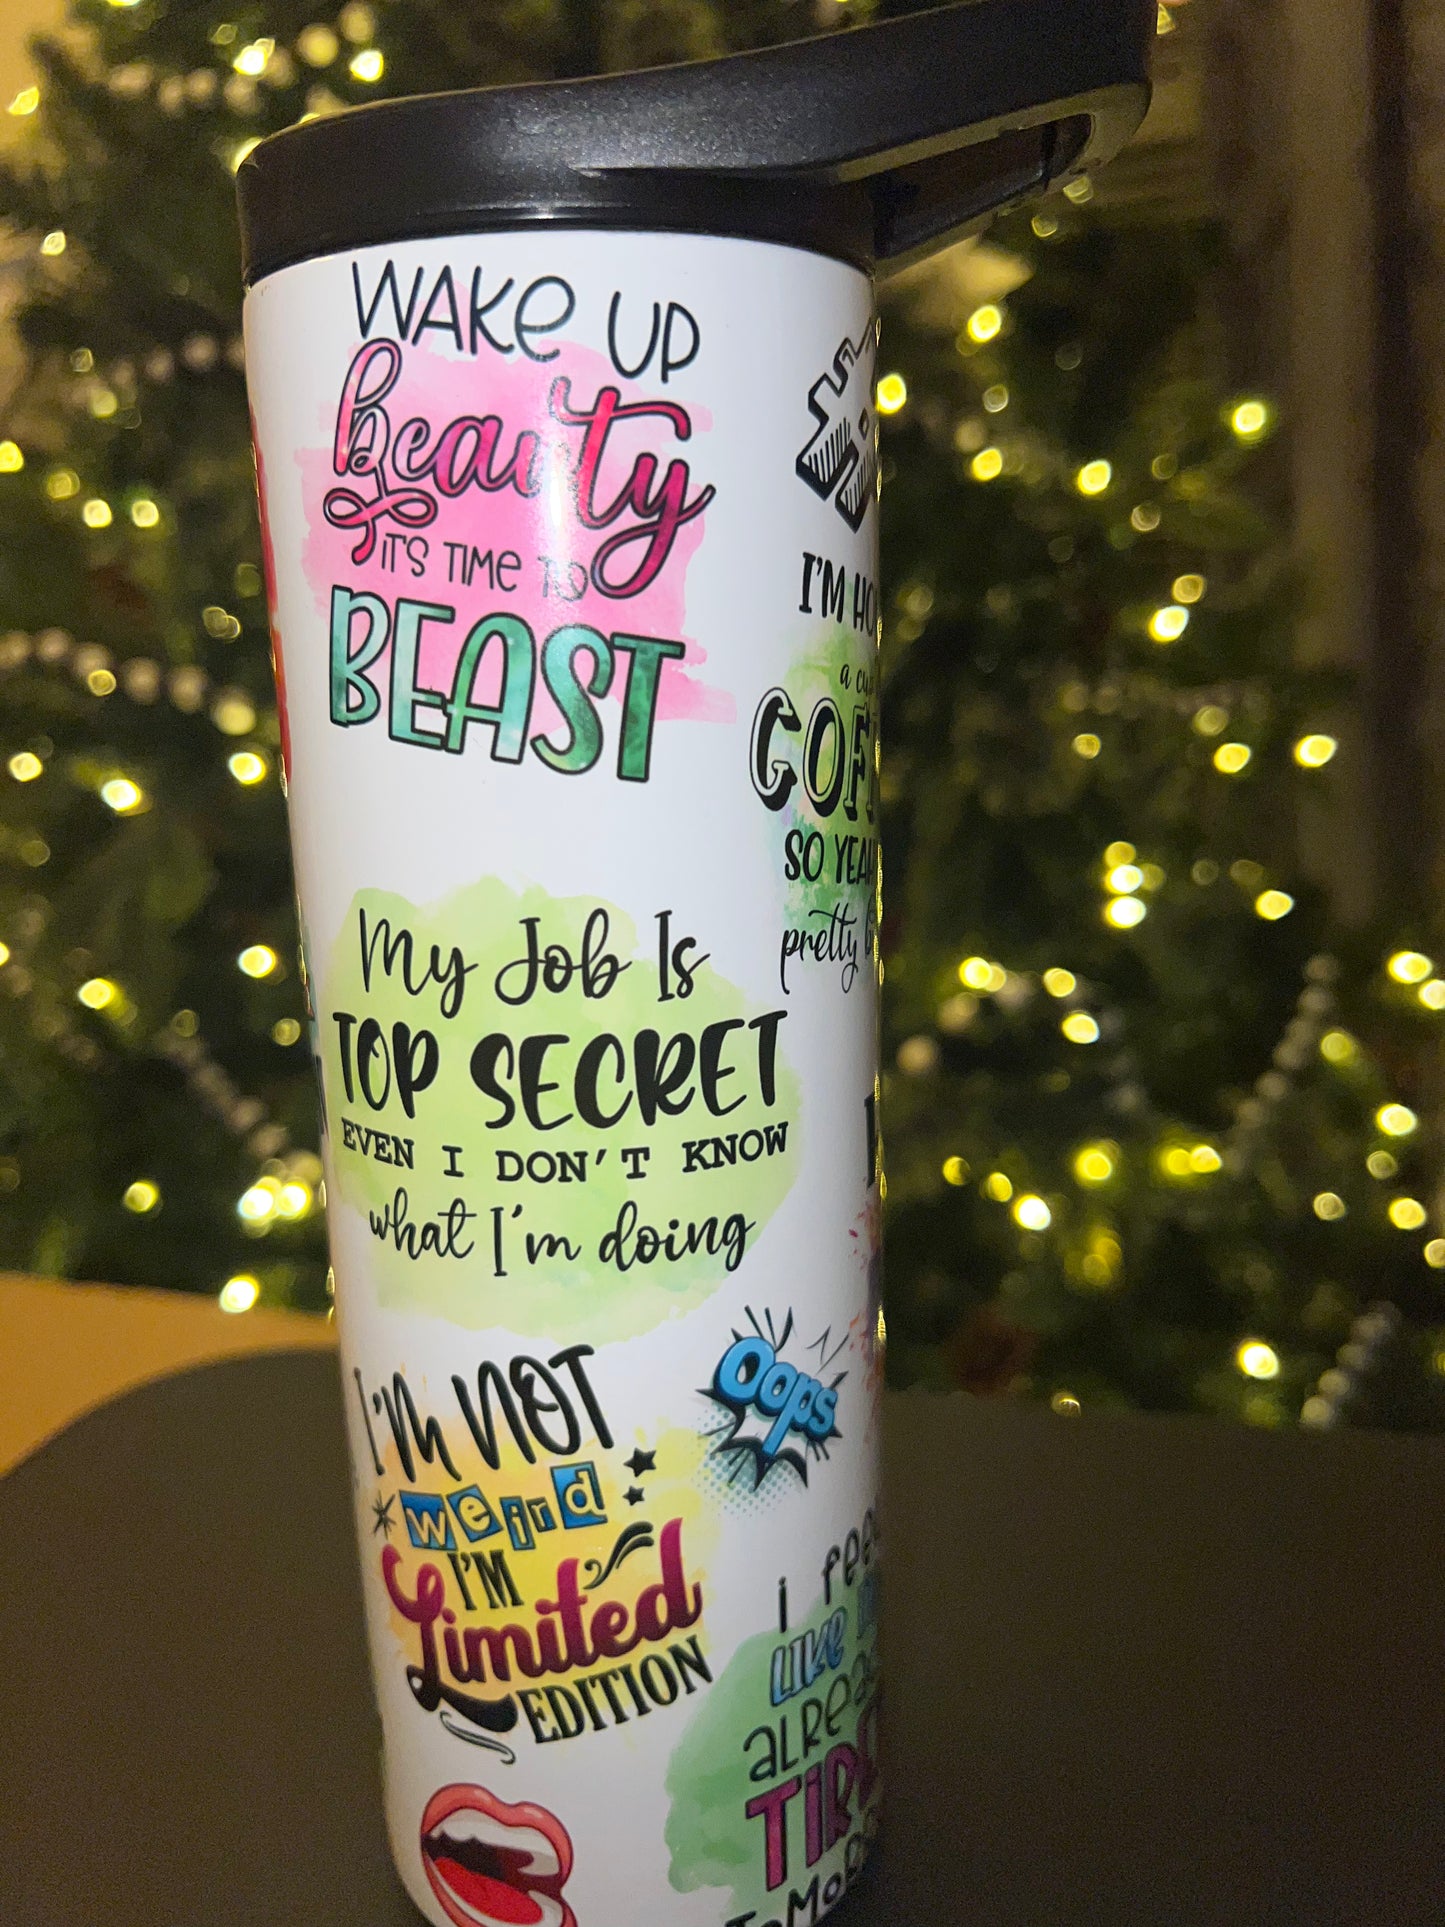 WAKE UP
Beauty
IT'S TIME TO
BEAST
I'M
a
SO YEAH
pretty
My Job Is
TOP SECRET
EVEN I DON'T KNOW
what I'm doing
Oops
I'M NOT
weird
I'M
Limited
EDITION
i feel
LIKE
ALREADY